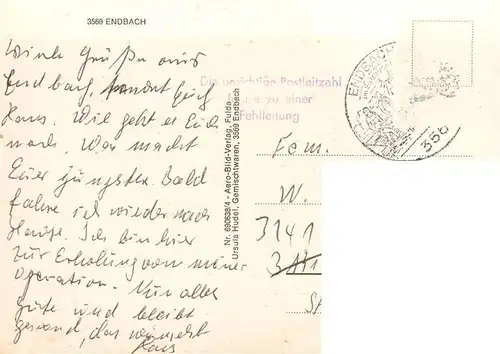 3569 ENDBACH
viele Grüße aus
Endbach, sendet Euch
Hans. Wie geht es Euch
noch. Was macht
Euer jüngster. Bald
fahre ich wieder nach
Hause. Ich bin hier
zur Erholung von meiner
Operation. Nun alles
gute und bleibt
gesund, das wünscht
Hans
Nr. 690638/4 - Aero-Bild-Verlag, Fulda
Ursula Hudel, Gemischtwaren, 3569 Endbach
Die unrichtige Postleitzahl
zu einer
Fehlleitung
ENDBACH
356
Fam.
W.
3141
St